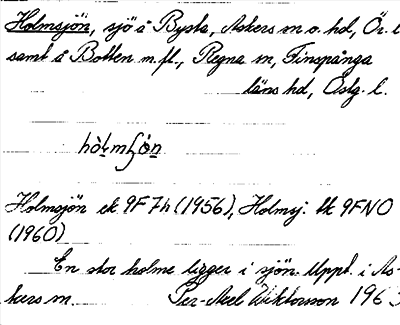 Holmsjön, sjö å Bysta, Askers sn o. hd, Ör. l
samt å Botten m.fl., Regna sn, Finspånga
läns hd, Östg. l.
Holmsjön ek 9F 7h (1956), Holmsj. tk 9FNO
(1960)
En stor holme ligger i sjön. Uppt. i As-
kers sn. Per-Axel Wiktorsson 1963